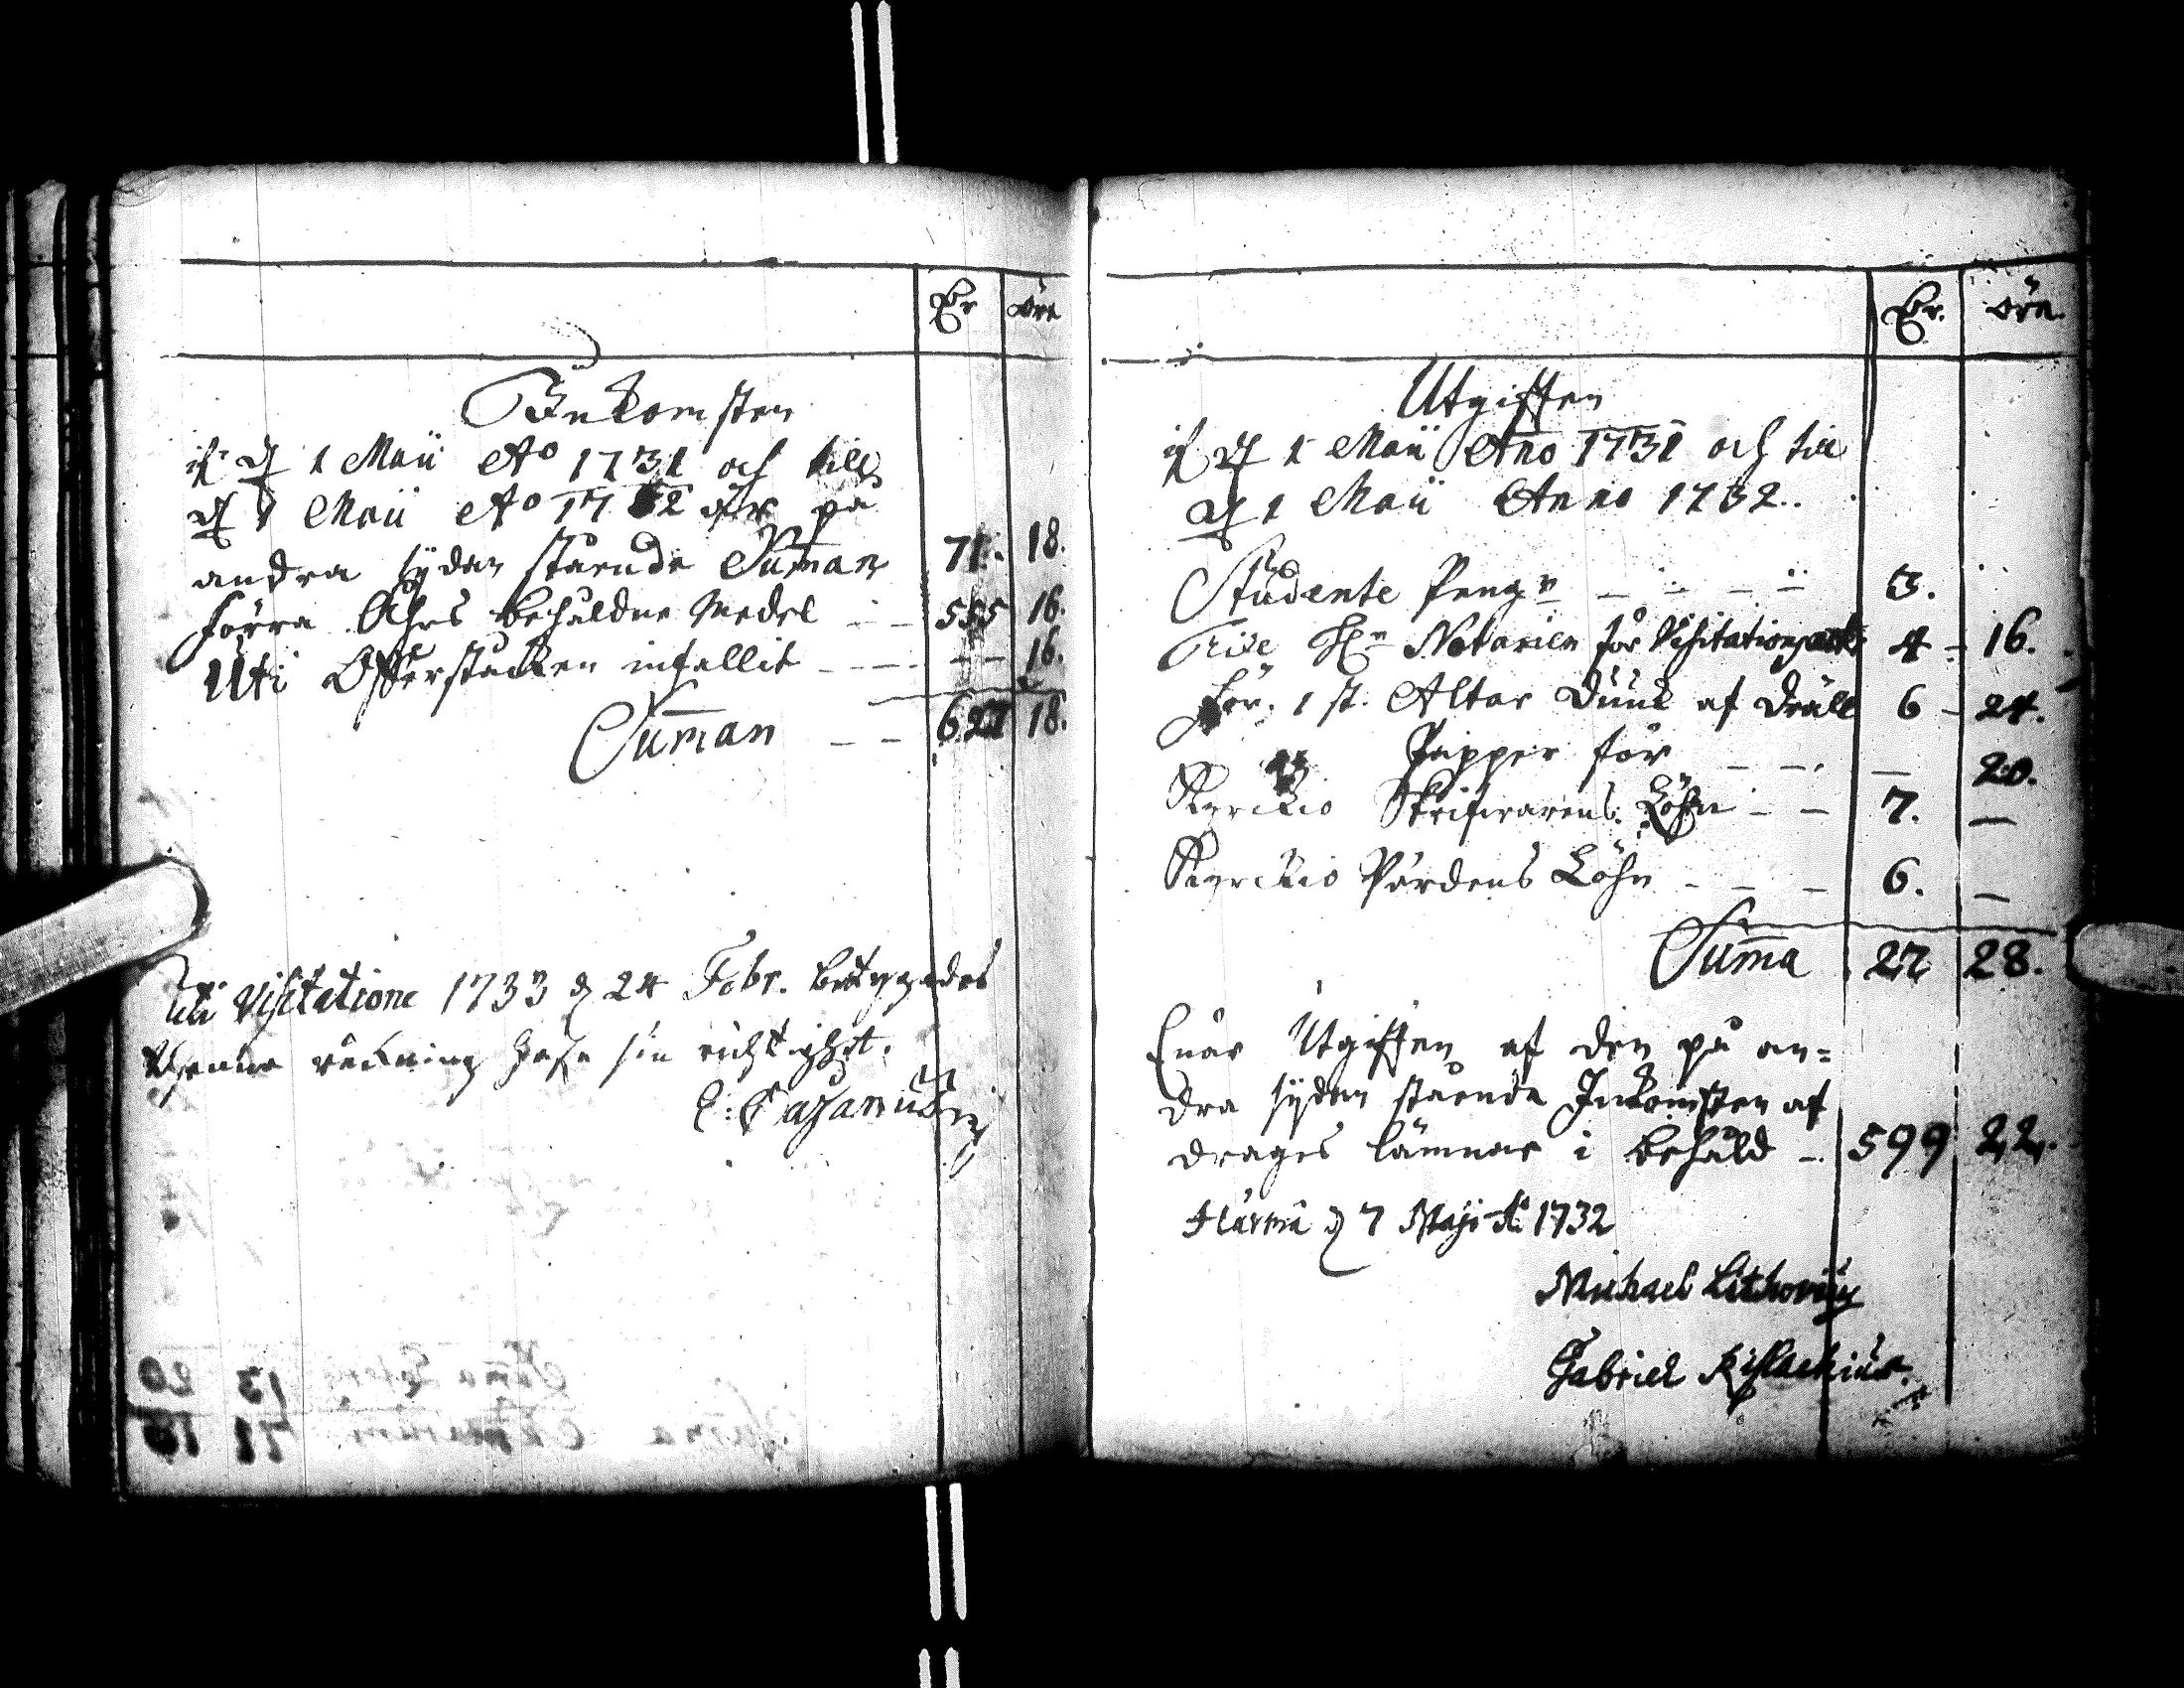 Dr öre
Inkomsten
if: d 1 Maii Ao 1731 och till
d 1 Maii Ao 1732 är på
andra sÿdan stående Sum̄an 71. 18.
Förra Åhrs behåldne Medel - - 555 16.
Uti Offerstocken infallit - - - - - 16.
Sum̄an - - 627 18.
Uti Visitatione 1733 d 24 Febr. betygades
denna räkning hafva sin richtighet.
C: Cajanus
Dr. öre.
Utgiften
if d 1 Maii Anno 1731 och till
d 1 Maii Anno 1732.
Studente Peng:r - - - - 3.
H:r Notarien för Visitation 4 - 16.
För 1 st. Altar Duuk af Dräll 6 - 24.
Papper för - - - - 20.
Kyrckio Skrifvarens Löhn - - 7. —
Kyrckio Vårdens Löhn - - - 6. —
Sum̄a 27 28.
Enär Utgiften af den på an=
dra sÿdan stående Inkomsten af
drages lämnas i behåld - 599 22.
Härmä d 7 Maji Ao 1732
Michael Lithovius
Gabriel